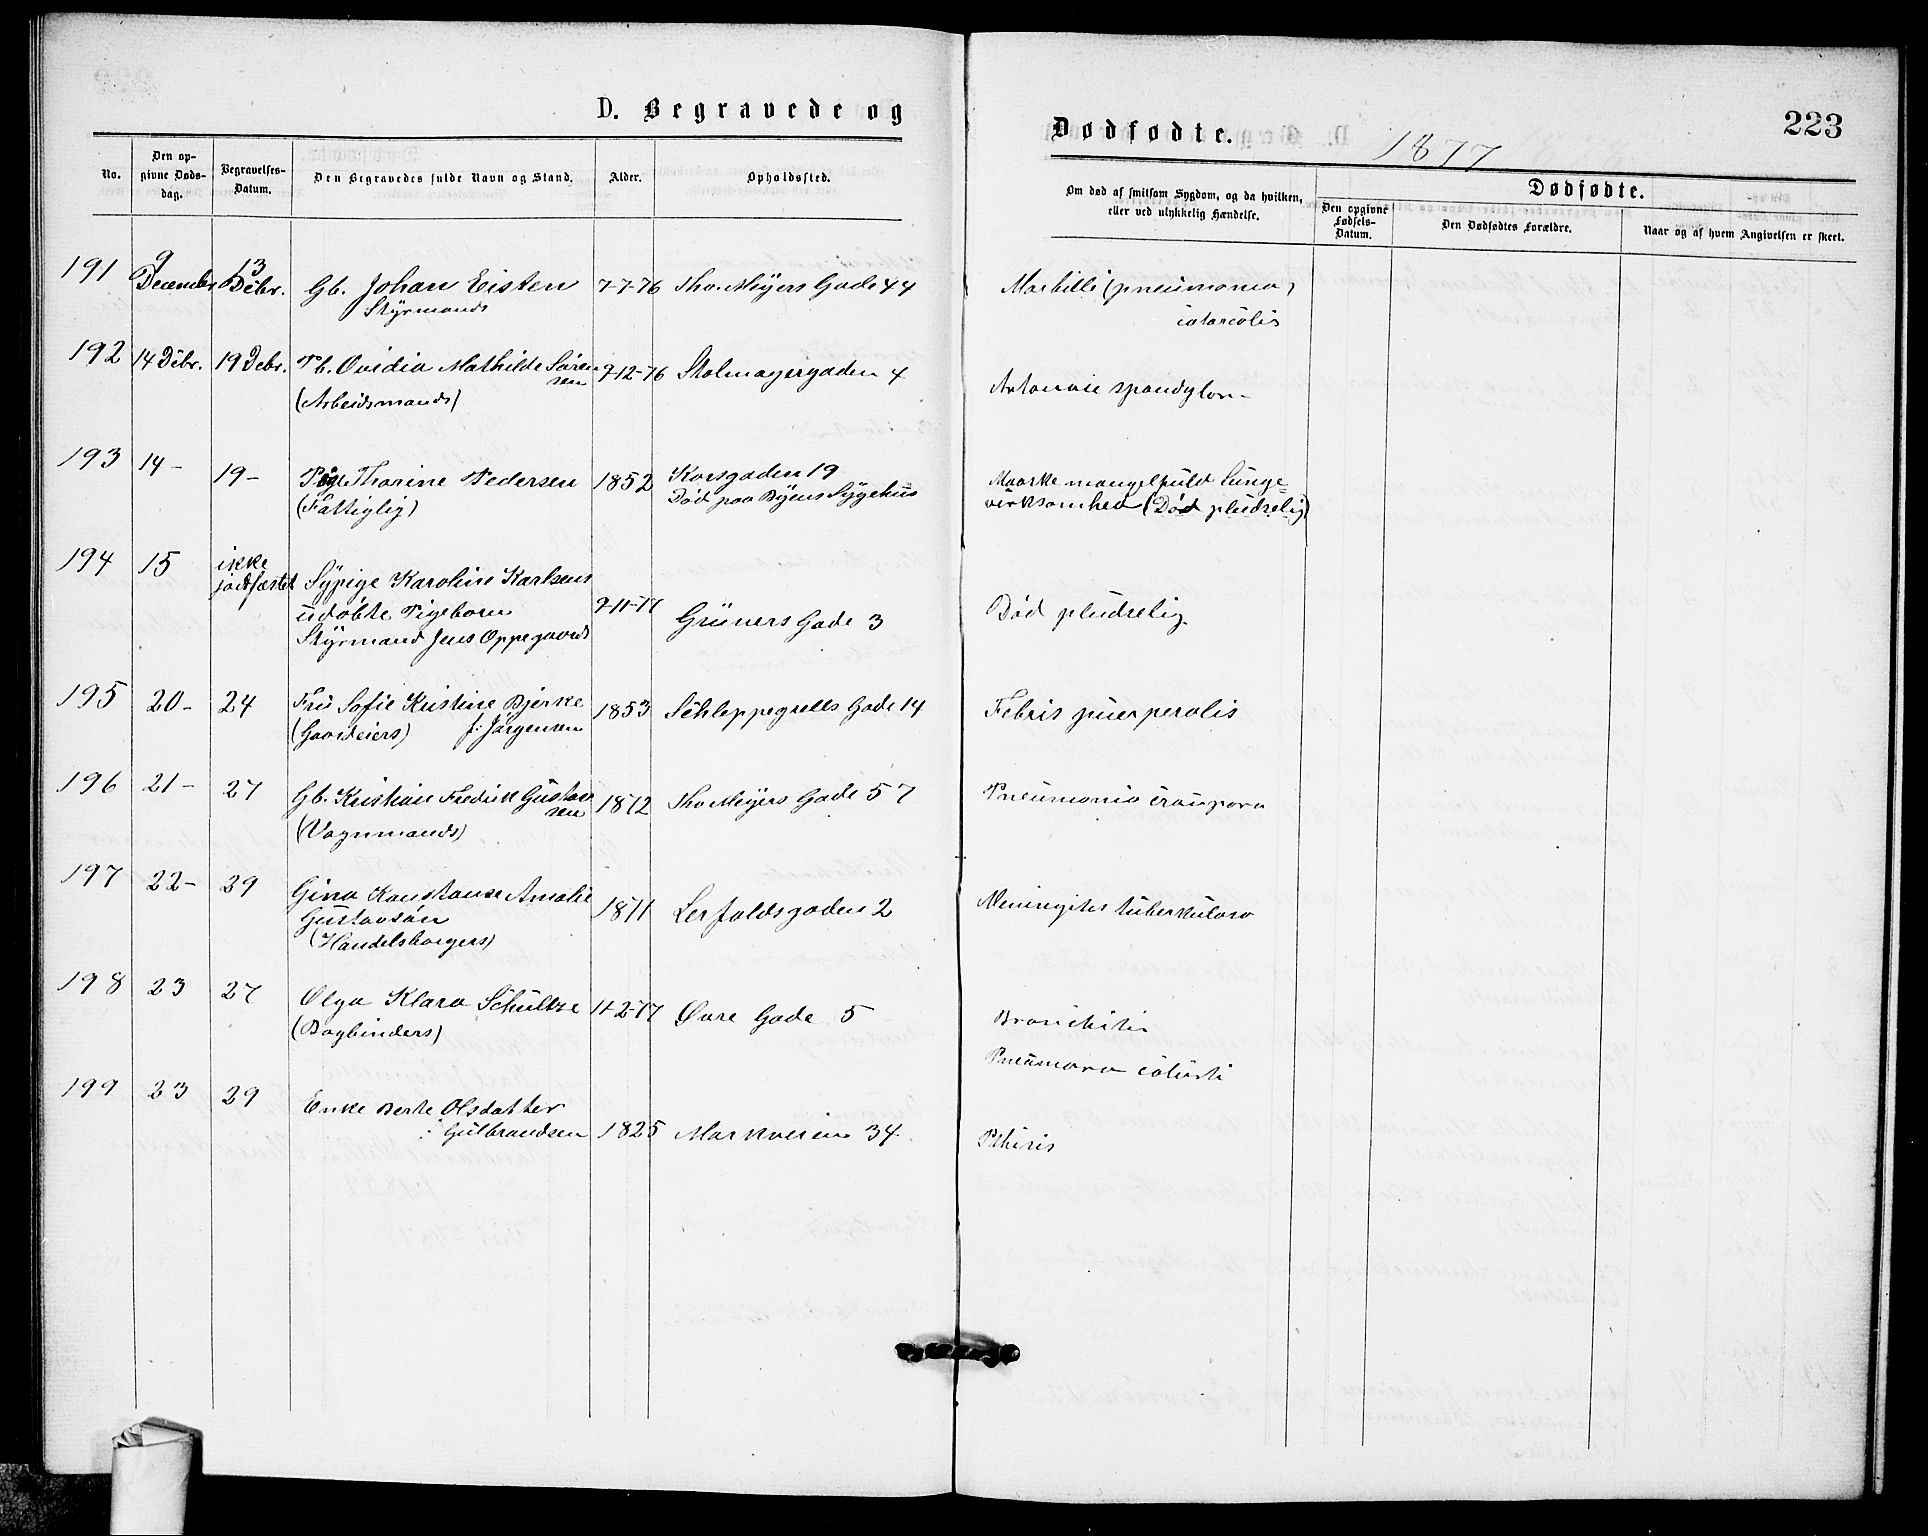 D. Begravede og
Dødfødte.
1877
223
No.
Den op-
givne Døds-
dag.
Begravelses-
Datum.
Den Begravedes fulde Navn og Stand.
Alder.
Opholdssted.
Om død af smitsom Sygdom, og da hvilken,
eller ved ulykkelig Hændelse.
Dødfødte.
Den opgivne
Fødsels-
Datum.
Den Dødfødtes Forældre.
Naar og af hvem Angivelsen er skeet.
191 9 December 13 Decbr. Gb. Johan Eisten 7-7-76 Tho. Meÿers Gade 44 Morbilli (pneumonia)
Stÿrmands
192 14 Decbr. 19 Decbr. Pb. Ovidia Mathilde Søren
sen 9-12-76 Stolmagergaden 4
(Arbeidsmands)
193 14 - 19 - Pige Thorine Pedersen 1852 Korsgaden 19 Maaske mangelfuld Lunge=
(Fattiglig) Død paa Bÿens Sÿgehus virksomhed (Død pludselig)
194 15 ikke
jordfæstet Sÿpige Karoline Karlsens
udøbte Pigebarn 9-11-77 Grüners Gade 3 Død pludselig
Stÿrmand Jens Oppegaards
195 20 - 24 Fru Sofie Kristine Bjerke 1853 Schleppegrells Gade 14 Febris puerperalis
(Gaardeiers) f. Jørgensen
196 21 - 27 Gb. Kristian Fredrik Gustav
sen 1872 Tho Meÿers Gade 57 Pneumonia
(Vognmands)
197 22 - 29 Gina Konstanse Amalie
Gustavsøn 1871 Lerfaldsgaden 2 Meningitis tuberkulosa
(Handelsborgers)
198 23 27 Olga Klara Schultze 11-2-77 Øvre Gade 5 Bronchitis
(Bogbinders)
199 23 29 Enke Berte Olsdatter
Gulbrandsen 1825 Markveien 34. Pthisis